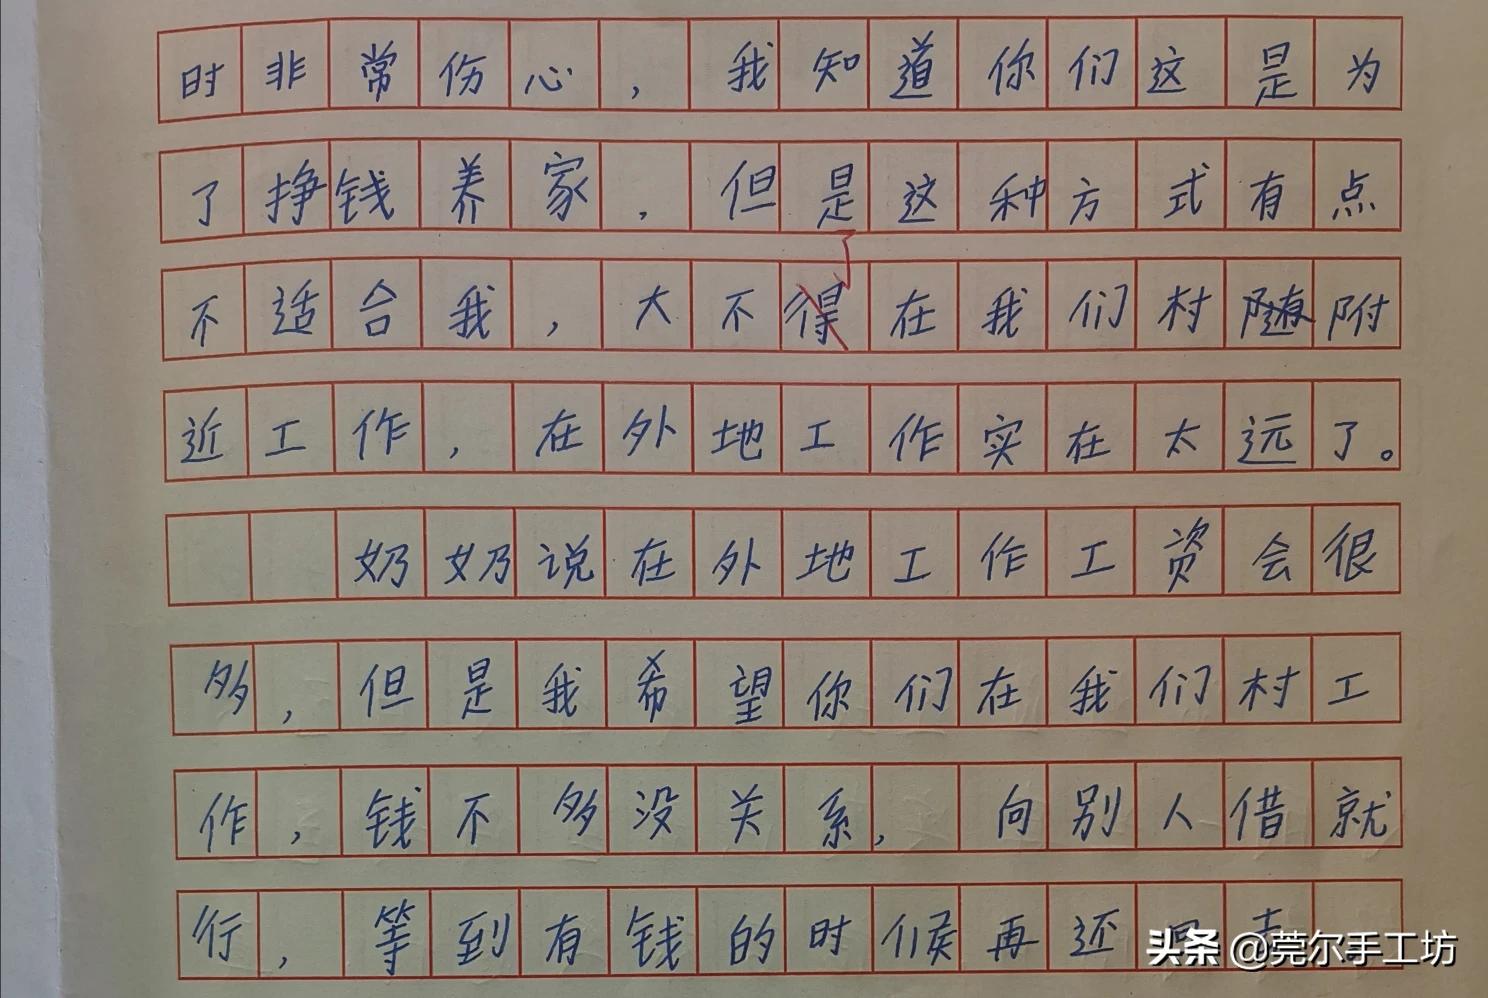 时非常伤心，我知道你们这是为
了挣钱养家，但是这种方式有点
不适合我，大不得在我们村随附
了
近工作，在外地工作实在太远了。
奶奶说在外地工作工资会很
多，但是我希望你们在我们村工
作，钱不多没关系，向别人借就
行，等到有钱的时候再还回去
头条 @莞尔手工坊